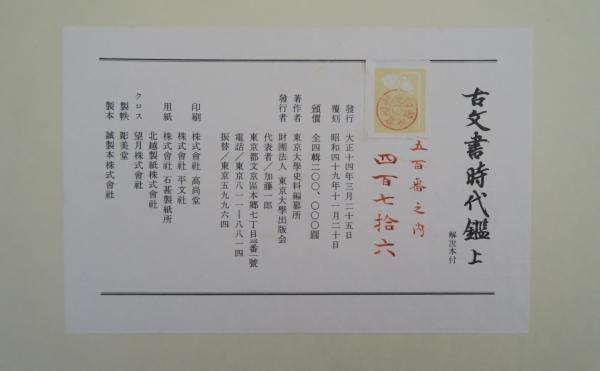 古文書時代鑑 上
解説本付
五百番之内
四百七拾六
發行 大正十四年三月二十五日
覆刻 昭和四十九年十一月二十日
頒價 全四輯二〇〇、〇〇〇圓
著作者 東京大學史料編纂所
發行者 財團法人 東京大學出版会
代表者/加藤一郎
東京都文京區本郷七丁目三番一號
電話/東京八一一―八八一四
振替/東京五九九六四
印刷 株式會社 高尚堂
株式會社 平文社
用紙 株式會社 石甚製紙所
北越製紙株式會社
クロス 望月株式會社
製帙 彫美堂
製本 誠製本株式會社